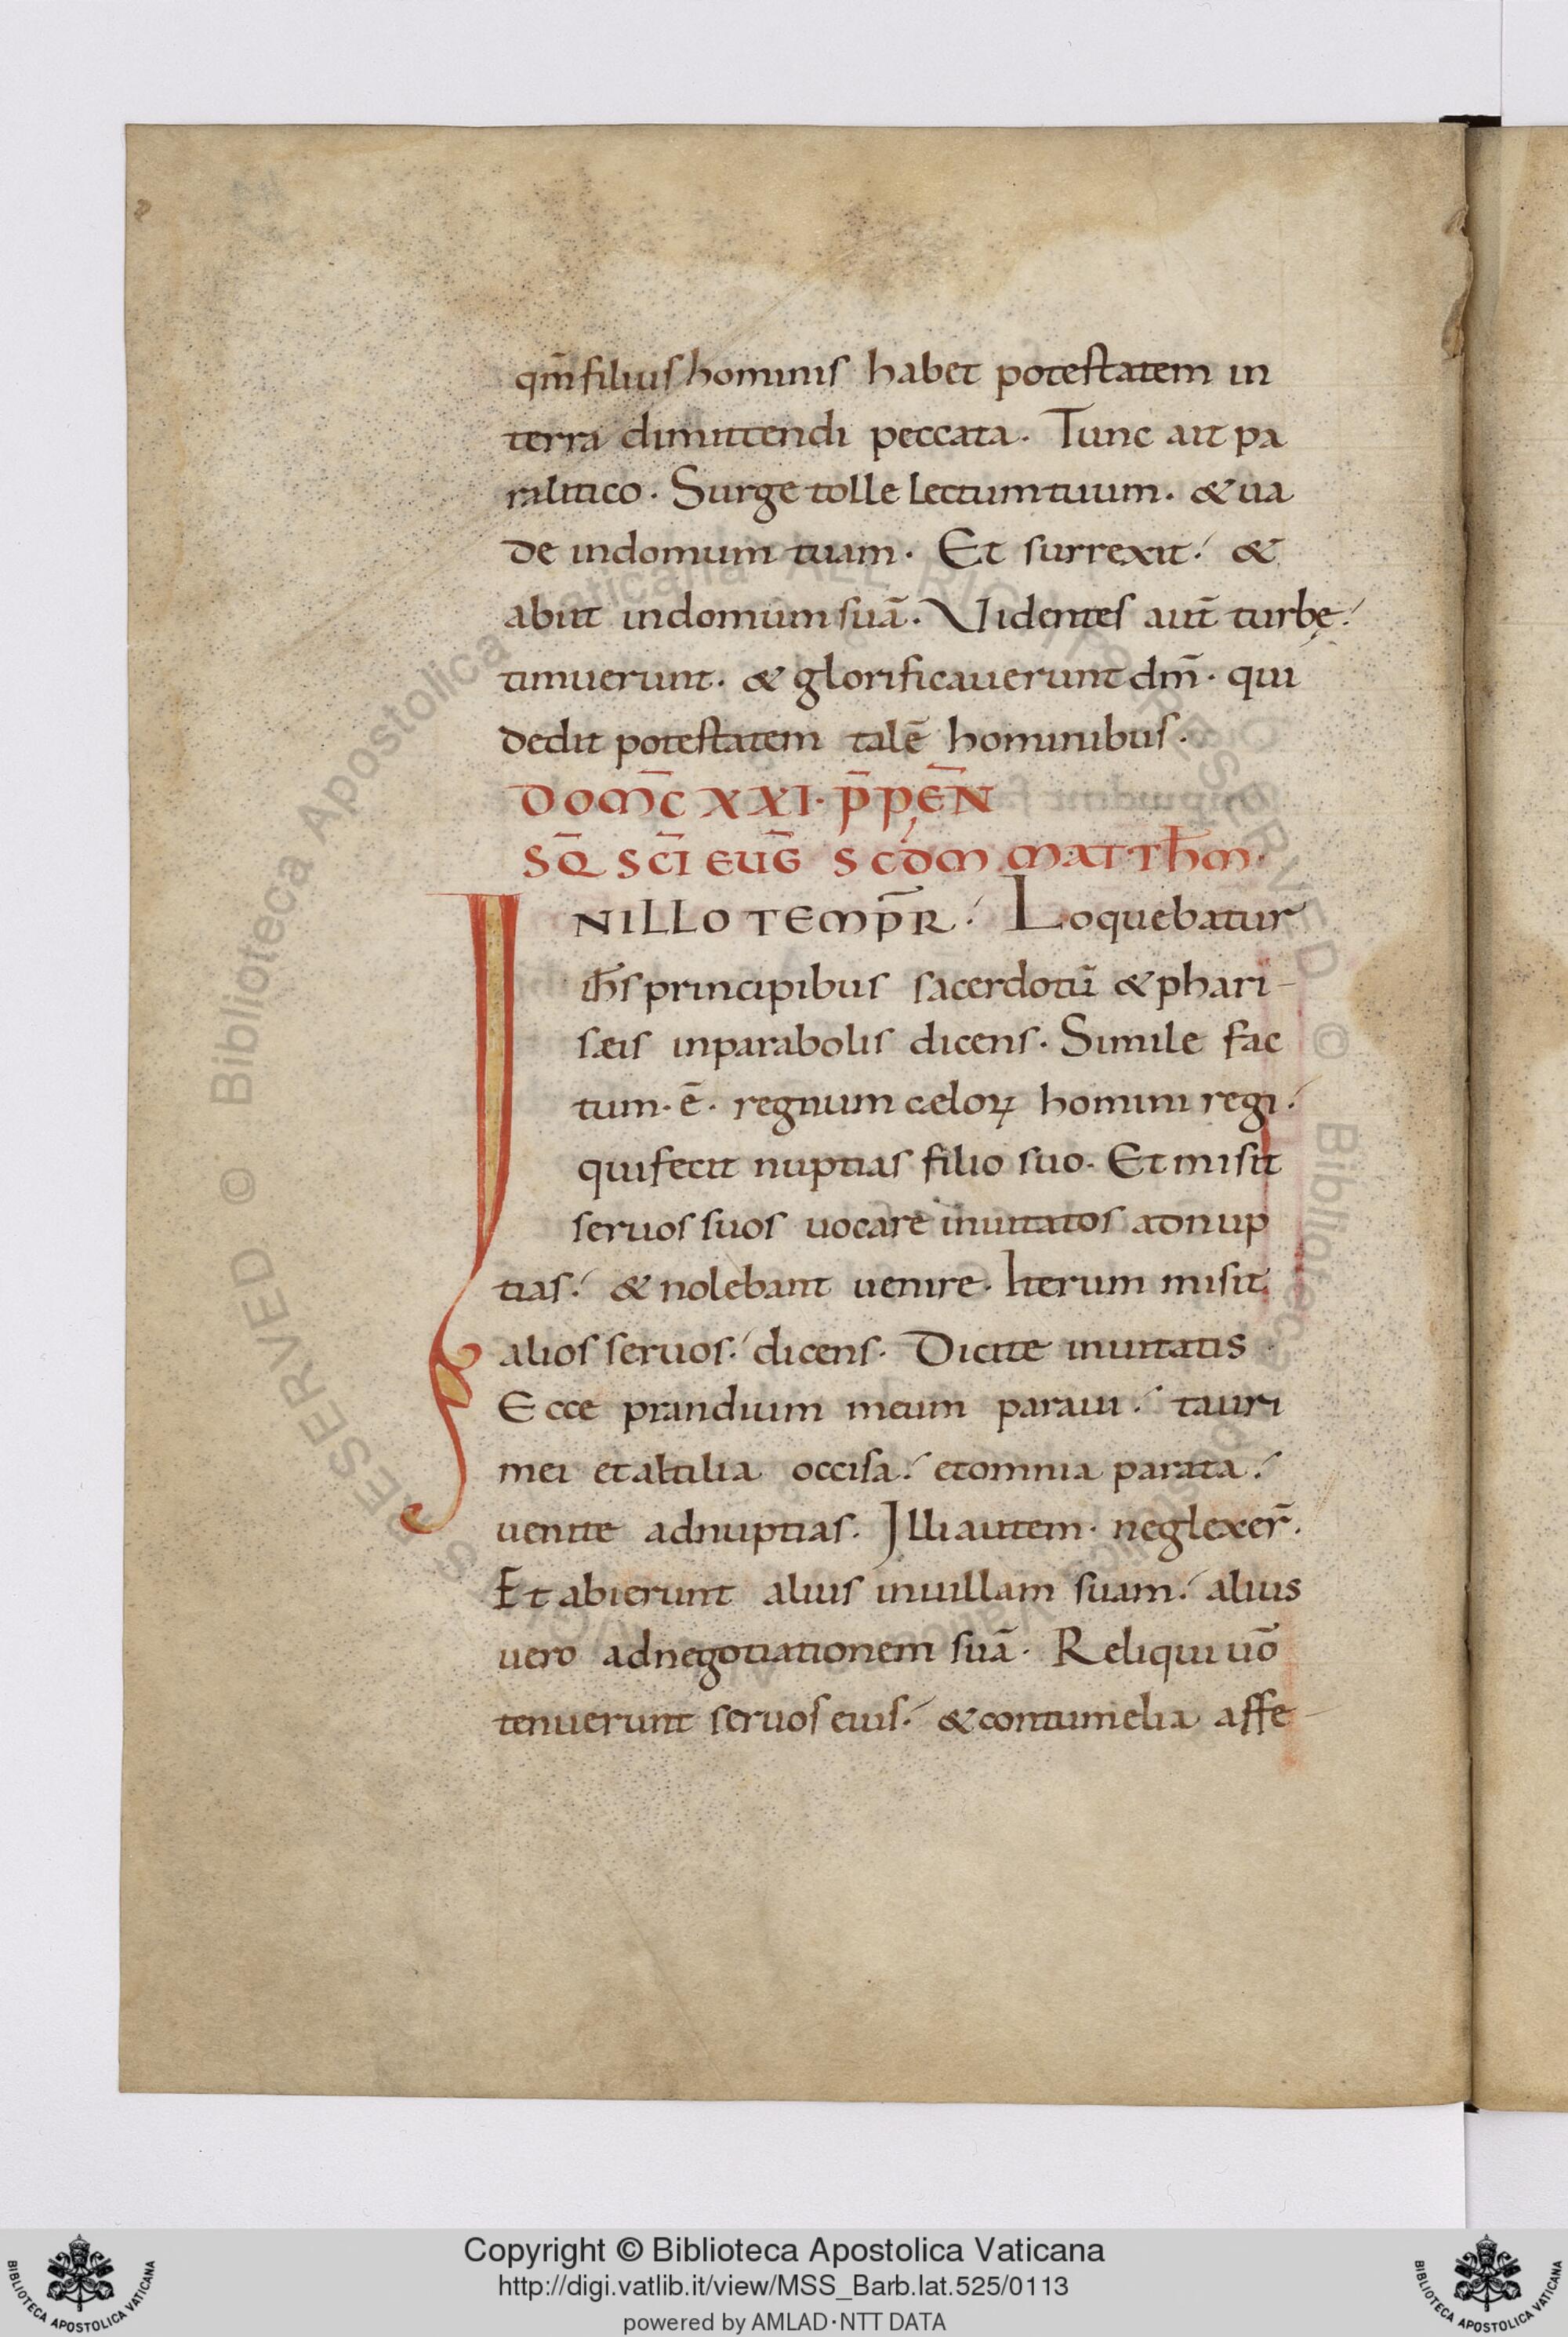 qm̄ filius hominis habet potestatem in
terra dimittendi peccata. Tunc ait pa
ralitico. Surge tolle lectum tuum. & ua
de in domum tuam. Et surrexit. &
abiit in domum suā. Videntes aut̄ turbę.
timuerunt. & glorificauerunt dm̄. qui
dedit potestatem talē hominibus.
DOM̄C XXI. P̄ PEN̄
SQ̄ SC̄I EUḠ SCDM MATTHM̄.
IN ILLO TEMP̄R. Loquebatur
ih̄s principibus sacerdotū & phari-
sæis in parabolis dicens. Simile fac
tum. ē. regnum cælorꝝ homini regi.
qui fecit nuptias filio suo. Et misit
seruos suos uocare inuitatos ad nup
tias. & nolebant uenire. Iterum misit
alios seruos. dicens. Dicite inuitatis
Ecce prandium meum paraui. tauri
mei et altilia occisa. et omnia parata.
uenite ad nuptias. Illi autem. neglexer̄.
Et abierunt alius in uillam suam. alius
uero ad negotiationem suā. Reliqui uō
tenuerunt seruos eius. & contumelia affe-
Copyright © Biblioteca Apostolica Vaticana
http://digi.vatlib.it/view/MSS_Barb.lat.525/0113
powered by AMLAD·NTT DATA
BIBLIOTECA APOSTOLICA VATICANA
BIBLIOTECA APOSTOLICA VATICANA